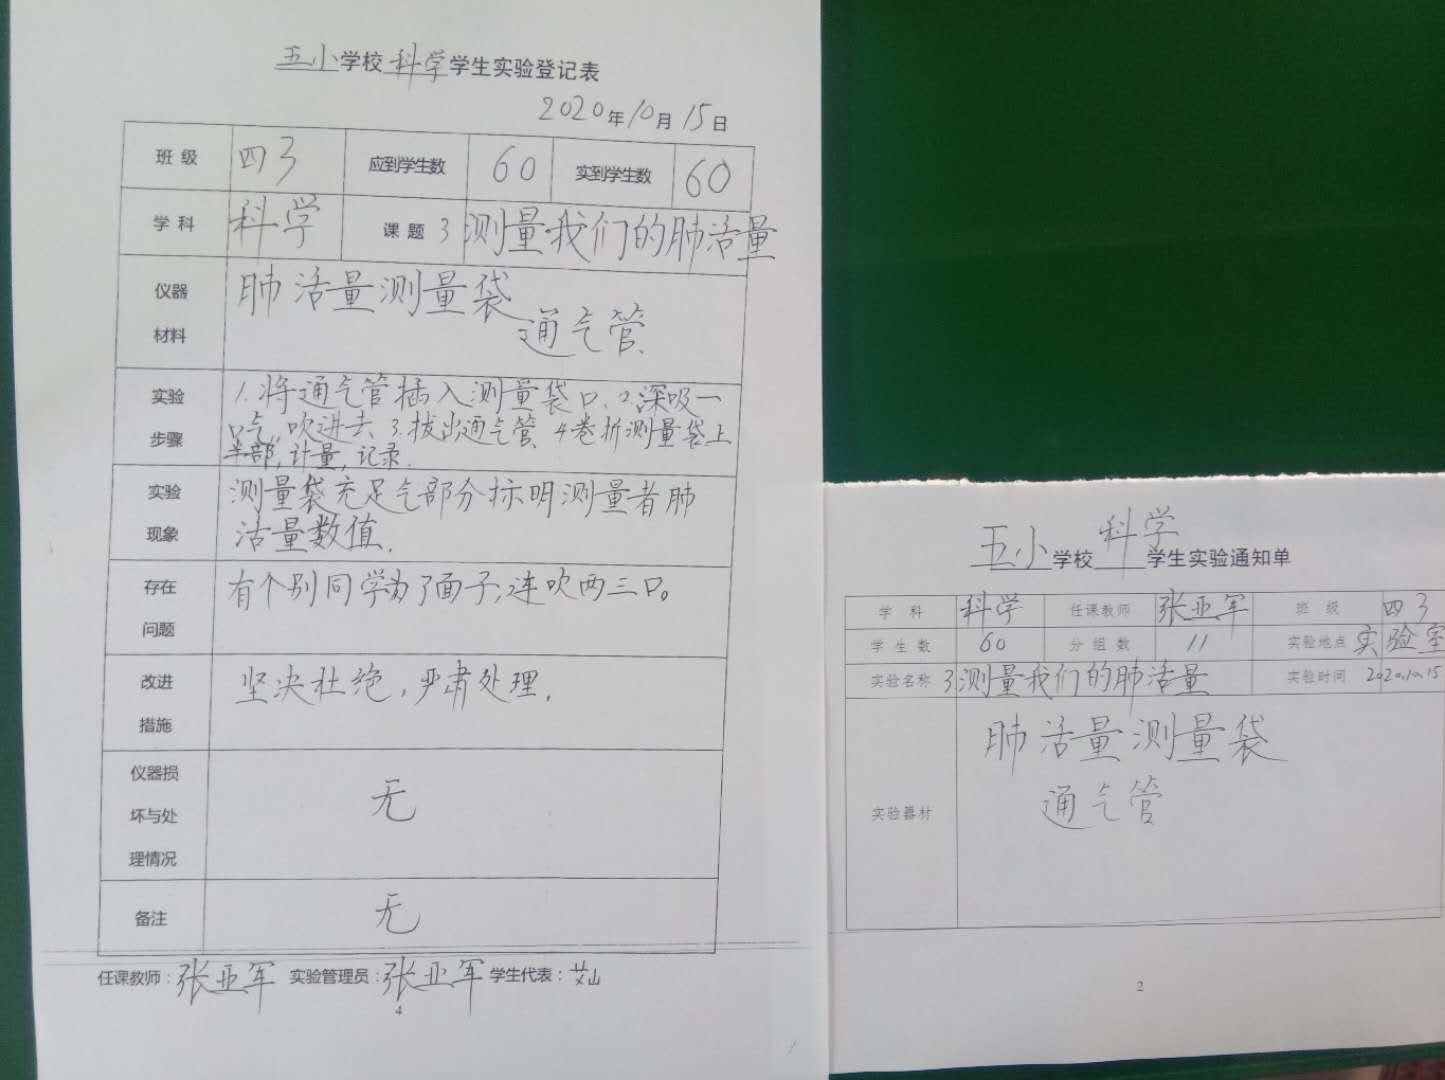 五小学校科学学生实验登记表
2020年10月15日
班级 四3 应到学生数 60 实到学生数 60
学科 科学 课题 3 测量我们的肺活量
仪器材料 肺活量测量袋
通气管.
实验步骤 1.将通气管插入测量袋口、2.深吸一
口气,吹进去、3.拔出通气管、4卷折测量袋上
半部,计量,记录.
实验现象 测量袋充足气部分标明测量者肺
活量数值.
存在问题 有个别同学为了面子,连吹两三口。
改进措施 坚决杜绝,严肃处理.
仪器损坏与处理情况 无
备注 无
任课教师:张亚军 实验管理员:张亚军 学生代表:
4
五小学校科学学生实验通知单
学科 科学 任课教师 张亚军 班级 四3
学生数 60 分组数 11 实验地点 实验室
实验名称 3.测量我们的肺活量 实验时间 2020.10.15
实验器材 肺活量测量袋
通气管
2